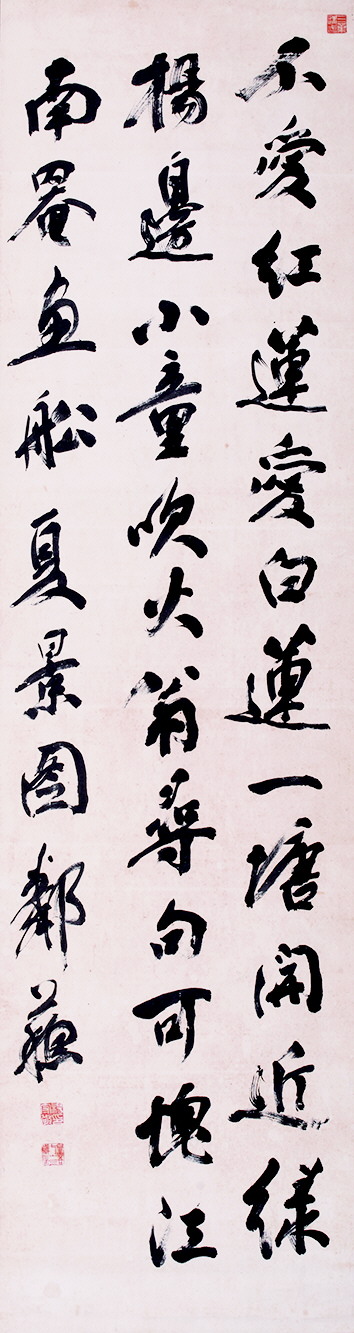 不愛紅蓮愛白蓮一塘開近綠
楊邊小童吹火翁尋句可愧江
南罨畫船夏景圖鄰蘇